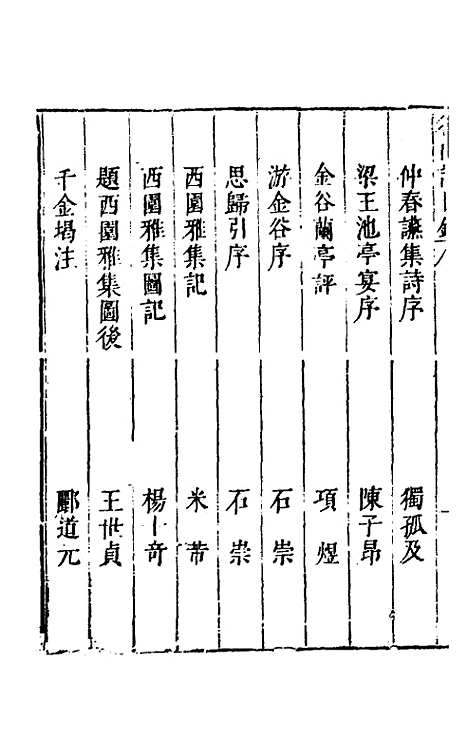 仲春讌集詩序 獨孤及
梁王池亭宴序 陳子昂
金谷蘭亭評 項煜
游金谷序 石崇
思歸引序 石崇
西園雅集記 米芾
西園雅集圖記 楊士奇
題西園雅集圖後 王世貞
千金堨注 酈道元